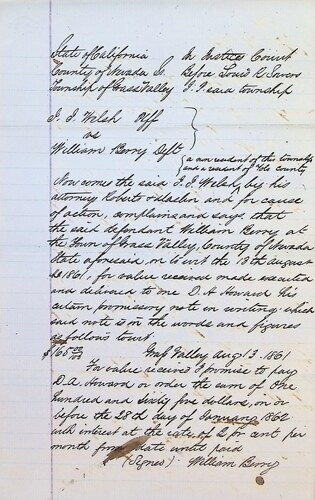 State of California In Justices Court
County of Nevada Ss. Before Louis R Sowers
Township of Grass Valley J. P. said township
J. J. Welsh Plff
vs
William Berry Deft
a non resident of this township
and a resident of Yolo county
Now comes the said J. J. Welsh by his
attorney Roberts & and for cause
of action, complains and says, that
the said defendant William Berry at
the Town of Grass Valley, County of Nevada
State aforesaid, on to wit the 13th August
1861, for value received made executed
and delivered to one D. A. Howard his
certain promissory note in writing which
said note is in the words and figures
as follows to wit.
$165 00/100 Grass Valley Aug 13. 1861
For value received I promise to pay
D. A. Howard or order the sum of One
hundred and Sixty five dollars, on or
before the 28th day of January 1862
with interest at the rate of 2 per cent per
month from date until paid
(Signed) William Berry